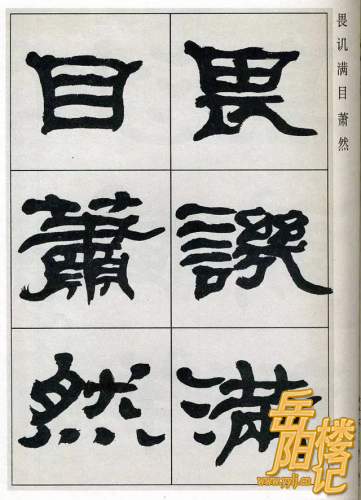 畏讥满目 萧然
畏譏滿
目蕭然
岳阳楼记
www.yylj.cn